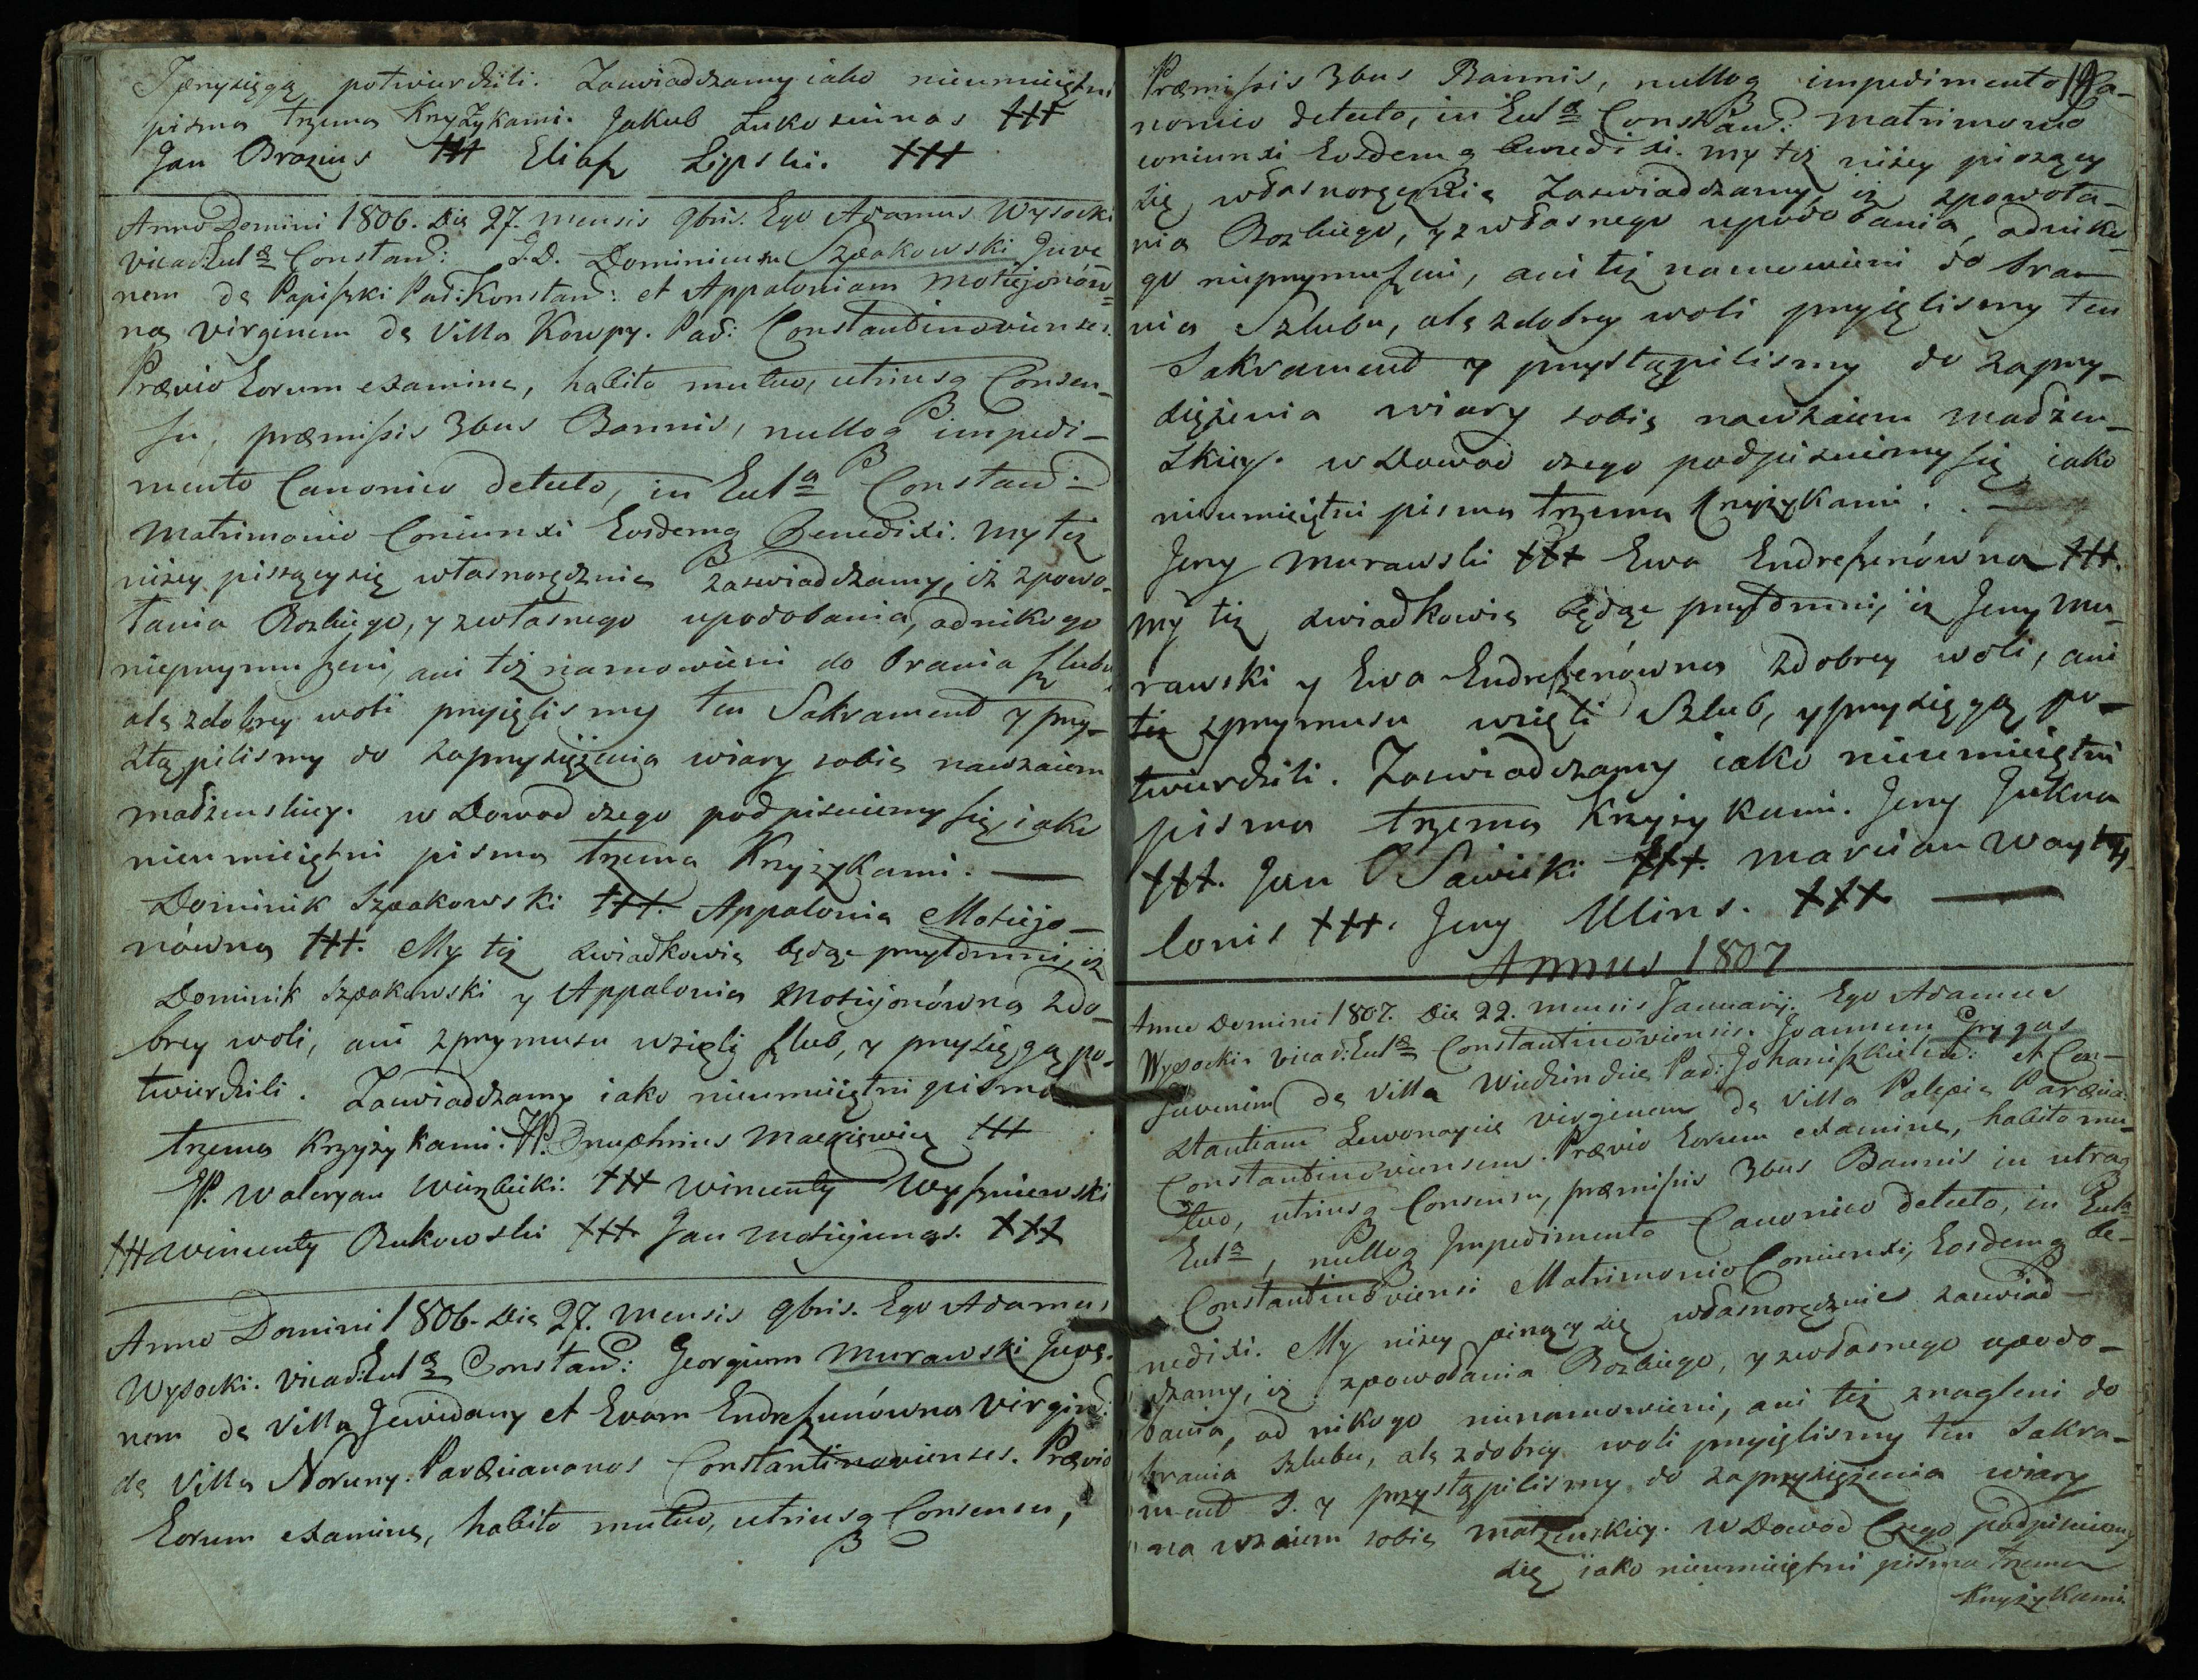 Pprzysięgą potwierdzili. Zaswiadczamy iako nieumieiętni
pisma trzema Krzyżykami. Jakub Lukosiunas +++
Jan Brazius +++ Eliasz Lipski. +++
Anno Domini 1806. Die 27. mensis 9bris. Ego Adamus Wysocki
Vicad: Eccl̃æ Constand: G.D. Dominicum Szpakowski Juve
nem de Papiszki Pad: Konstand: et Appaloniam Motiejonow=
nę virginem de Villa Kowpy. Pad: Constantinovienses.
Prævio Eorum examine, habito mutuo, utriusq Consen-
su, præmissis 3bus Bannis, nulloq impedi-
mento Canonico detecto, in Eccl̃a Constand:
Matrimonio Coniunxi Eosdemq Benedixi. My też
niżey piszący się własnoręcznie zaswiadczamy, iż zpowo-
łania Bozkiego, y zwłasnego upodobania, odnikogo
nieprzymuszeni, ani też namowieni do brania szlubu
ale zdobrey woli przyięlismy ten Sakrament y przy-
stąpilismy do zaprzysiężenia wiary sobie nawzaiem
madżenskiey. w Dowod czego podpisuiemy się iako
nieumieiętni pisma trzema Krzyżykami. —
Dominik Szpakowski +++. Appalonia Motiejo-
nówna +++. My też swiadkowie będąc przytomni, iż
Dominik Szpakowski y Appalonia Motiejonówna zdo-
brey woli, ani zprzymusu wzięli szlub, y przysięgą po-
twierdzili. Zaswiadczamy iako nieumieiętni pisma
trzema Krzyżykami. JP. Onuphrius Mackiewicz +++
JP. Waleryan Wierzbicki +++ Wincenty Wyszniewski
+++ Wincenty Bukowski +++ Jan Motiejunas. +++
Anno Domini 1806. Die 27. Mensis 9bris. Ego Adamus
Wysocki. Vicad: Eccl̃æ Constand: Georgium Murawski Juve-
nem de Villa Jewidany et Evam Endreszunówna Virgin:
de Villa Noruny. Paræcianos Constantinovienses. Prævio
Eorum examine, habito mutuo, utriusq Consensu,
Præmissis 3bus Bannis, nulloq impedimento Ca-
nonico detecto, in Eccl̃a Constand: Matrimonio
coniunxi Eosdemq benedixi. My też niżey piszący
się własnoręcznie Zaswiadczamy, iż zpowoła-
nia Bozkiego, y zwłasnego upodobania, odniko-
go nieprzymuszeni, ani też namowieni do bra-
nia Szlubu, ale zdobrey woli przyięlismy ten
Sakrament y przystąpilismy do zaprzy-
siężenia wiary sobie nawzaiem madżen-
skiey. w Dowod czego podpisuiemy się iako
nieumieiętni pisma trzema Krzyżykami. —
Jerzy Murawski +++ Ewa Endreszenówna +++.
my też swiadkowie będąc przytomni, iż Jerzy Mu-
rawski y Ewa Endreszenówna zdobrey woli, ani
też zprzymusu wzięli Szlub, y przysięgą po-
twierdzili. Zaswiadczamy iako nieumieiętni
pisma trzema Krzyżykami. Jerzy Jukna
+++. Jan Sawicki +++. Marcian Wayty-
lonis +++. Jerzy Mins. +++
Annus 1807
Anno Domini 1807. Die 22. mensis Januarij. Ego Adamus
Wysocki Vicad: Eccl̃æ Constantinoviensis. Joannem Grygas
Juvenem de Villa Pad: Johaniszkielen: et Con-
stantiam virginem de Villa Paræcia:
Constantinoviensem. Prævio Eorum examine, habito mu-
tuo, utriusq Consensu, præmissis 3bus Bannis in utraq
Eccl̃a, nulloq Impedimento Canonico detecto, in Eccl̃a
Constantinoviensi Matrimonio Coniunxi, Eosdemq be-
nedixi. My niżey piszący się własnoręcznie zaswiad-
czamy, iż zpowołania Bozkiego, y zwłasnego upodo-
bania, od nikogo nienamowieni, ani też znagleni do
brania Szlubu, ale zdobrey woli przyięlismy ten Sakra-
ment S. y przystąpilismy do zaprzysiężenia wiary
na wzaiem sobie małżenskiey. W Dowod Czego podpisuiemy
się iako nieumieiętni pisma trzema
Krzyżykami